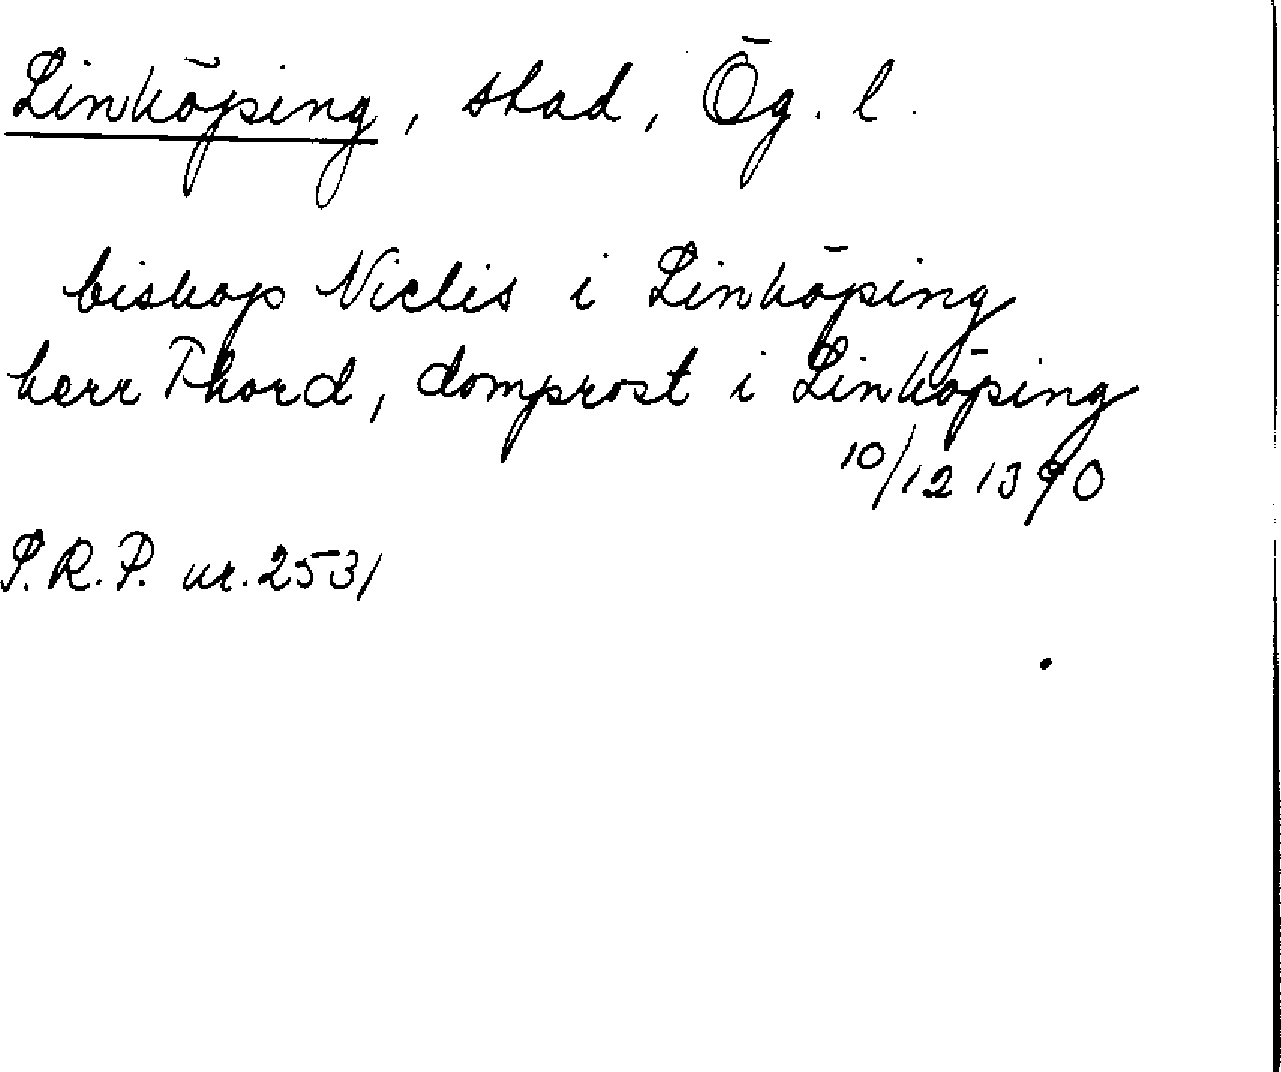 Linköping, stad, Ög. l.
biskop Niclis i Linköping
herr Thord, domprost i Linköping
10/12 1390
S.R.P. nr. 2531